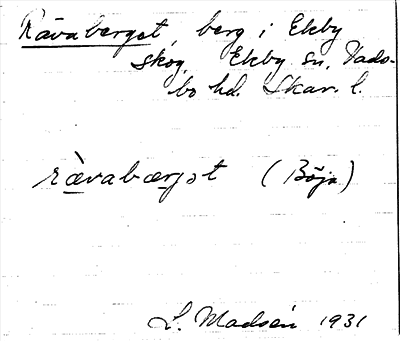 Rävaberget, berg i Ekby
skog, Ekby sn, Vads-
bo hd. Skar. l.
rävabærgət (Böja)
L. Madsén 1931